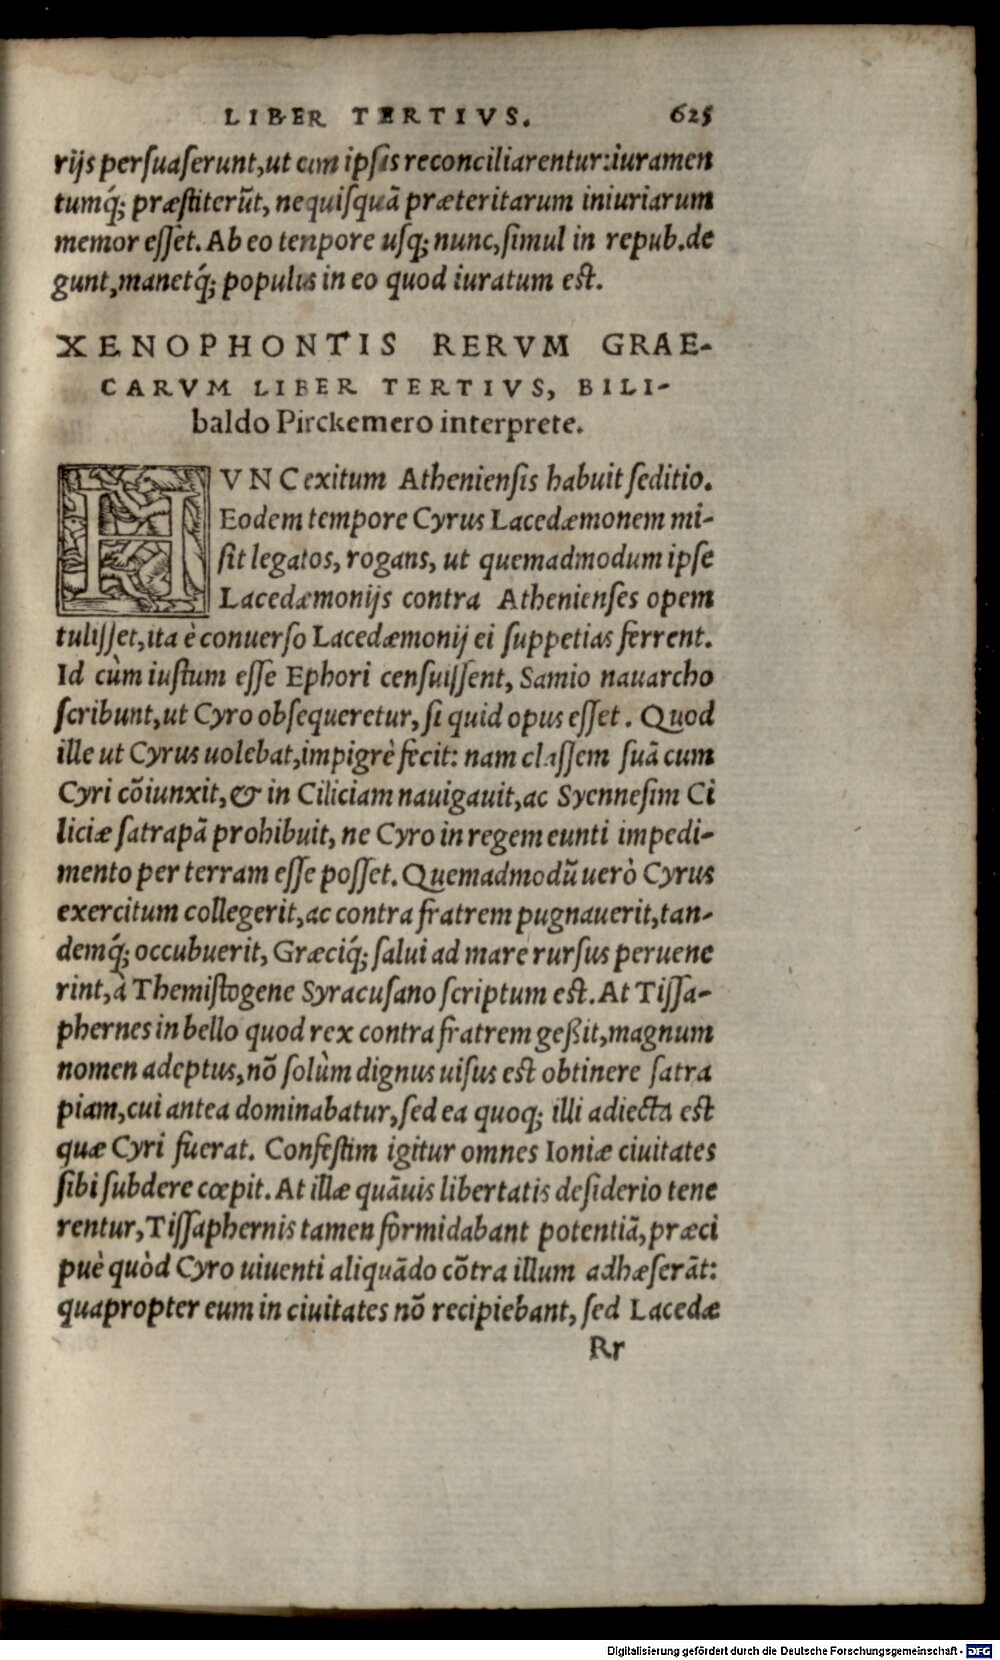 LIBER TERTIVS. 625
rijs persuaserunt, ut cum ipsis reconciliarentur: iuramen
tumq́; præstiterũt, ne quisquã præteritarum iniuriarum
memor esset. Ab eo tenpore usq; nunc, simul in repub. de
gunt, manetq́; populus in eo quod iuratum est.
XENOPHONTIS RERVM GRAE-
CARVM LIBER TERTIVS, BILI-
baldo Pirckemero interprete.
HVNC exitum Atheniensis habuit seditio.
Eodem tempore Cyrus Lacedæmonem mi-
sit legatos, rogans, ut quemadmodum ipse
Lacedæmonijs contra Athenienses opem
tulisset, ita è conuerso Lacedæmonij ei suppetias ferrent.
Id cùm iustum esse Ephori censuissent, Samio nauarcho
scribunt, ut Cyro obsequeretur, si quid opus esset. Quod
ille ut Cyrus uolebat, impigrè fecit: nam classem suã cum
Cyri cõiunxit, & in Ciliciam nauigauit, ac Syennesim Ci
liciæ satrapã prohibuit, ne Cyro in regem eunti impedi-
mento per terram esse posset. Quemadmodũ uerò Cyrus
exercitum collegerit, ac contra fratrem pugnauerit, tan-
demq́; occubuerit, Græciq́; salui ad mare rursus peruene
rint, à Themistogene Syracusano scriptum est. At Tissa-
phernes in bello quod rex contra fratrem geßit, magnum
nomen adeptus, nõ solùm dignus uisus est obtinere satra
piam, cui antea dominabatur, sed ea quoq; illi adiecta est
quæ Cyri fuerat. Confestim igitur omnes Ioniæ ciuitates
sibi subdere cœpit. At illæ quãuis libertatis desiderio tene
rentur, Tissaphernis tamen formidabant potentiã, præci
puè quòd Cyro uiuenti aliquãdo cõtra illum adhæserãt:
quapropter eum in ciuitates nõ recipiebant, sed Lacedæ
Rr
Digitalisierung gefördert durch die Deutsche Forschungsgemeinschaft - DFG